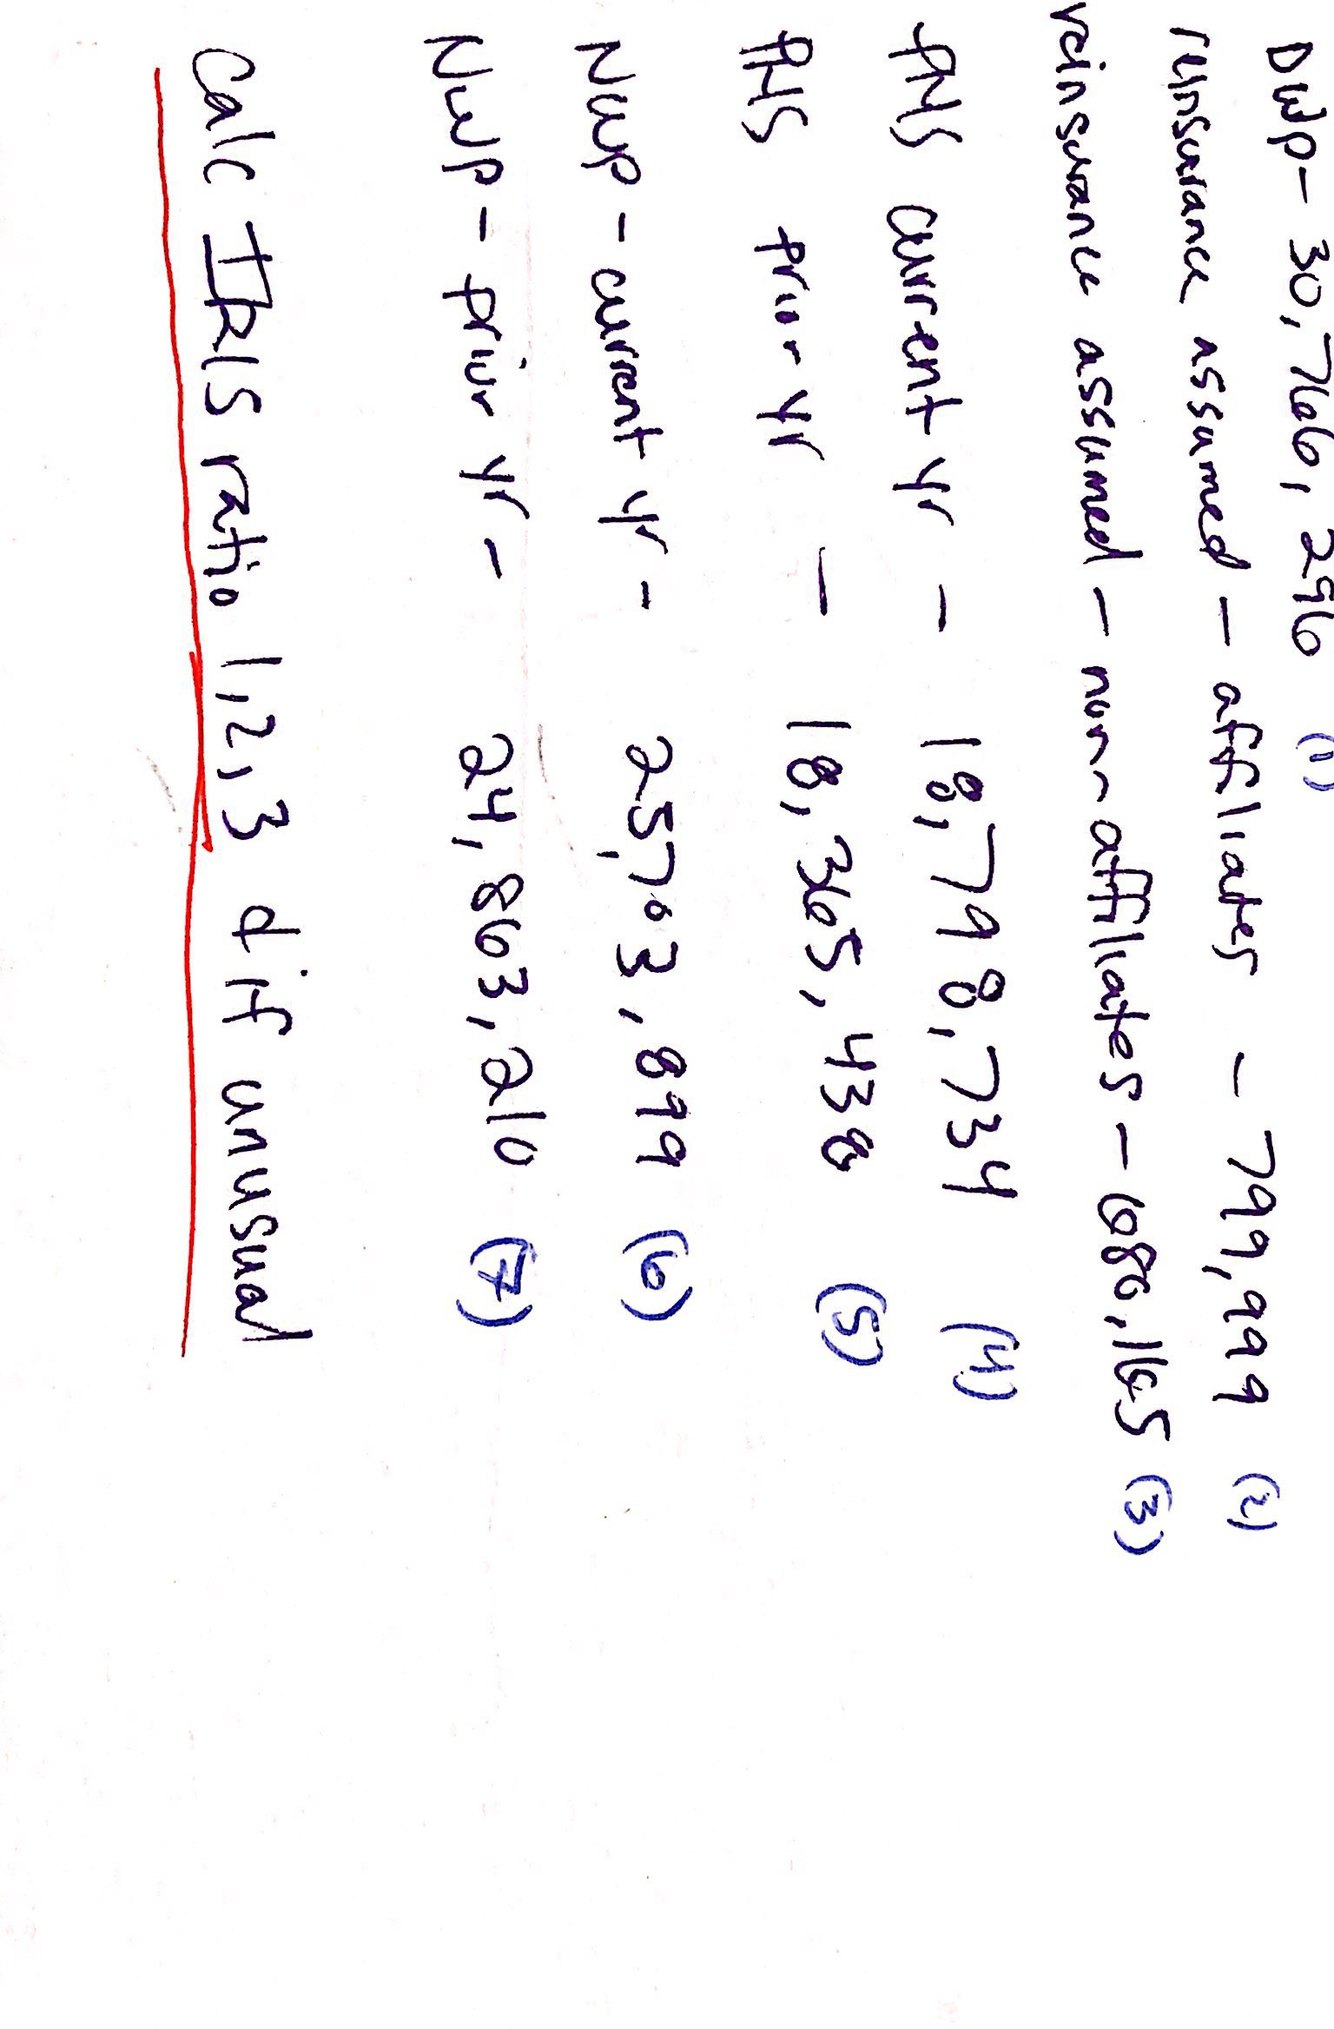 DWP- 30,766,296 (1)
reinsurance assumed - affiliates - 799,999 (2)
reinsurance assumed - non-affiliates - 686,165 (3)
PHS current yr - 18,798,734 (4)
PHS prior yr - 18,365,438 (5)
NWP - current yr - 25,703,899 (6)
NWP - prior yr - 24,863,210 (7)
Calc IRIS ratio 1,2,3 d if unusual